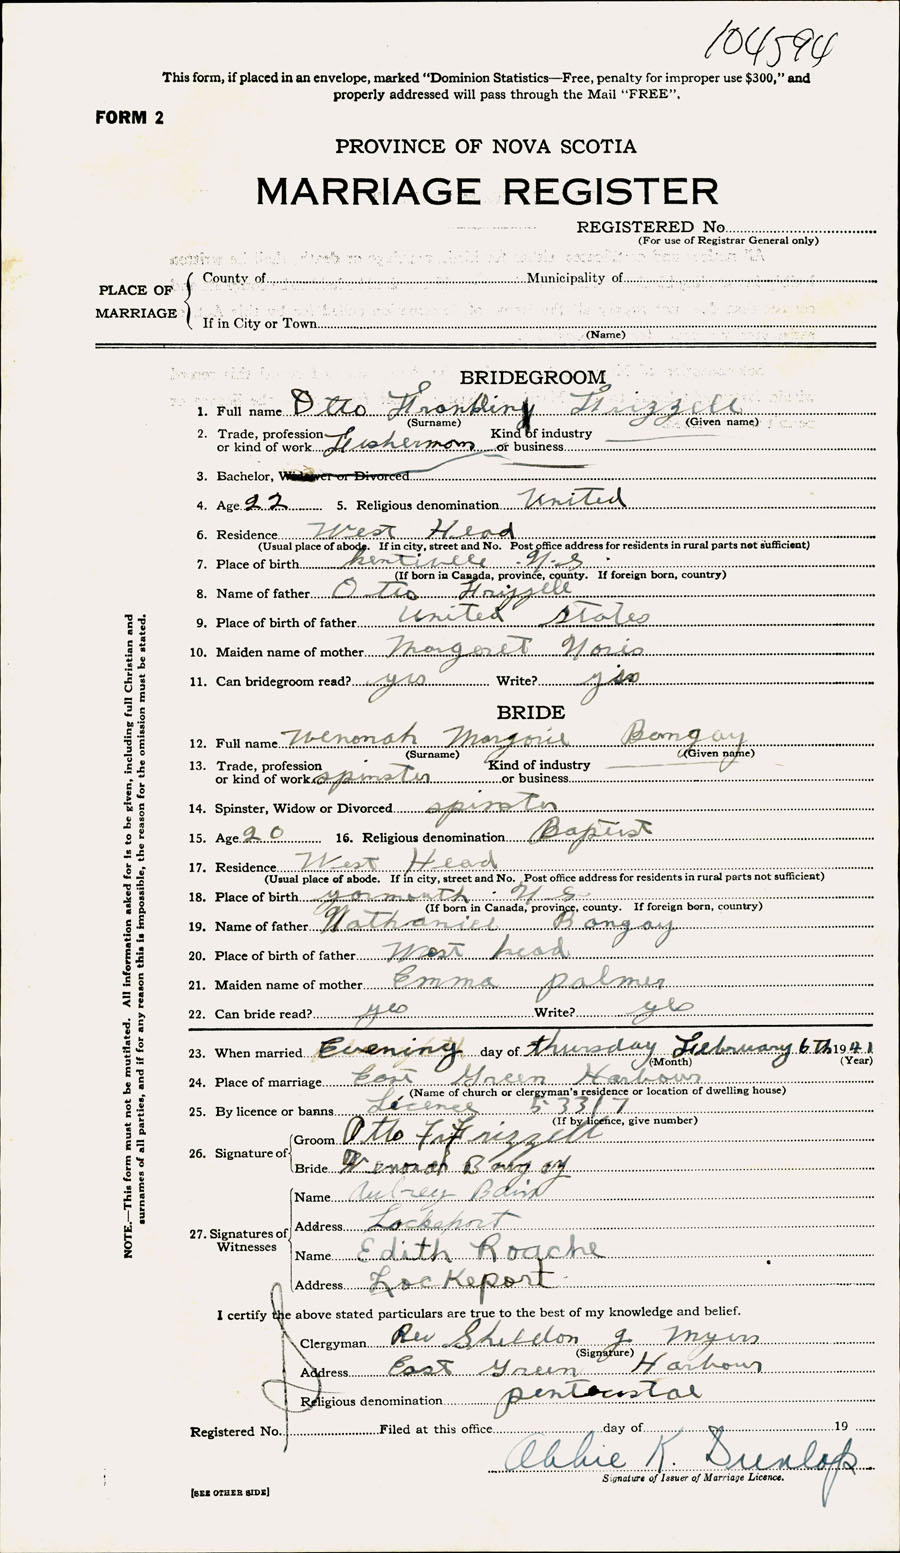 104594
This form, if placed in an envelope, marked "Dominion Statistics—Free, penalty for improper use $300," and
properly addressed will pass through the Mail "FREE".
FORM 2
PROVINCE OF NOVA SCOTIA
MARRIAGE REGISTER
REGISTERED No.
(For use of Registrar General only)
PLACE OF MARRIAGE
County of Municipality of
If in City or Town
(Name)
BRIDEGROOM
1. Full name Otto Frankling Frizzell
(Surname) (Given name)
2. Trade, profession or kind of work Fishermom Kind of industry or business
3. Bachelor, Widower or Divorced
4. Age 22 5. Religious denomination United
6. Residence West Head
(Usual place of abode. If in city, street and No. Post office address for residents in rural parts not sufficient)
7. Place of birth Kentiville N.S
(If born in Canada, province, county. If foreign born, country)
8. Name of father Otto Frizzell
9. Place of birth of father United States
10. Maiden name of mother Margeret Noris
11. Can bridegroom read? yes Write? yes
BRIDE
12. Full name Wenonah Marjorie Bangay
(Surname) (Given name)
13. Trade, profession or kind of work spinster Kind of industry or business
14. Spinster, Widow or Divorced spinster
15. Age 20 16. Religious denomination Baptist
17. Residence West Head
(Usual place of abode. If in city, street and No. Post office address for residents in rural parts not sufficient)
18. Place of birth yarmouth N S
(If born in Canada, province, county. If foreign born, country)
19. Name of father Nathaniel Bangay
20. Place of birth of father West head
21. Maiden name of mother Emma palmer
22. Can bride read? yes Write? yes
23. When married Evening day of thursday February 6th 1941
(Month) (Year)
24. Place of marriage East Green Harbour
(Name of church or clergyman's residence or location of dwelling house)
25. By licence or banns Licence 53317
(If by licence, give number)
26. Signature of
Groom Otto F Frizzell
Bride Wenonah Bangay
27. Signatures of Witnesses
Name Aubrey Bain
Address Lockeport
Name Edith Roache
Address Lockeport
I certify the above stated particulars are true to the best of my knowledge and belief.
Clergyman Rev Sheldon J Myers
(Signature)
Address East Green Harbour
Religious denomination pentecostal
Registered No. Filed at this office day of 19
Abbie K. Dunlop
Signature of Issuer of Marriage Licence.
[SEE OTHER SIDE]
NOTE.—This form must not be mutilated. All information asked for is to be given, including full Christian and
surnames of all parties, and if for any reason this is impossible, the reason for the omission must be stated.